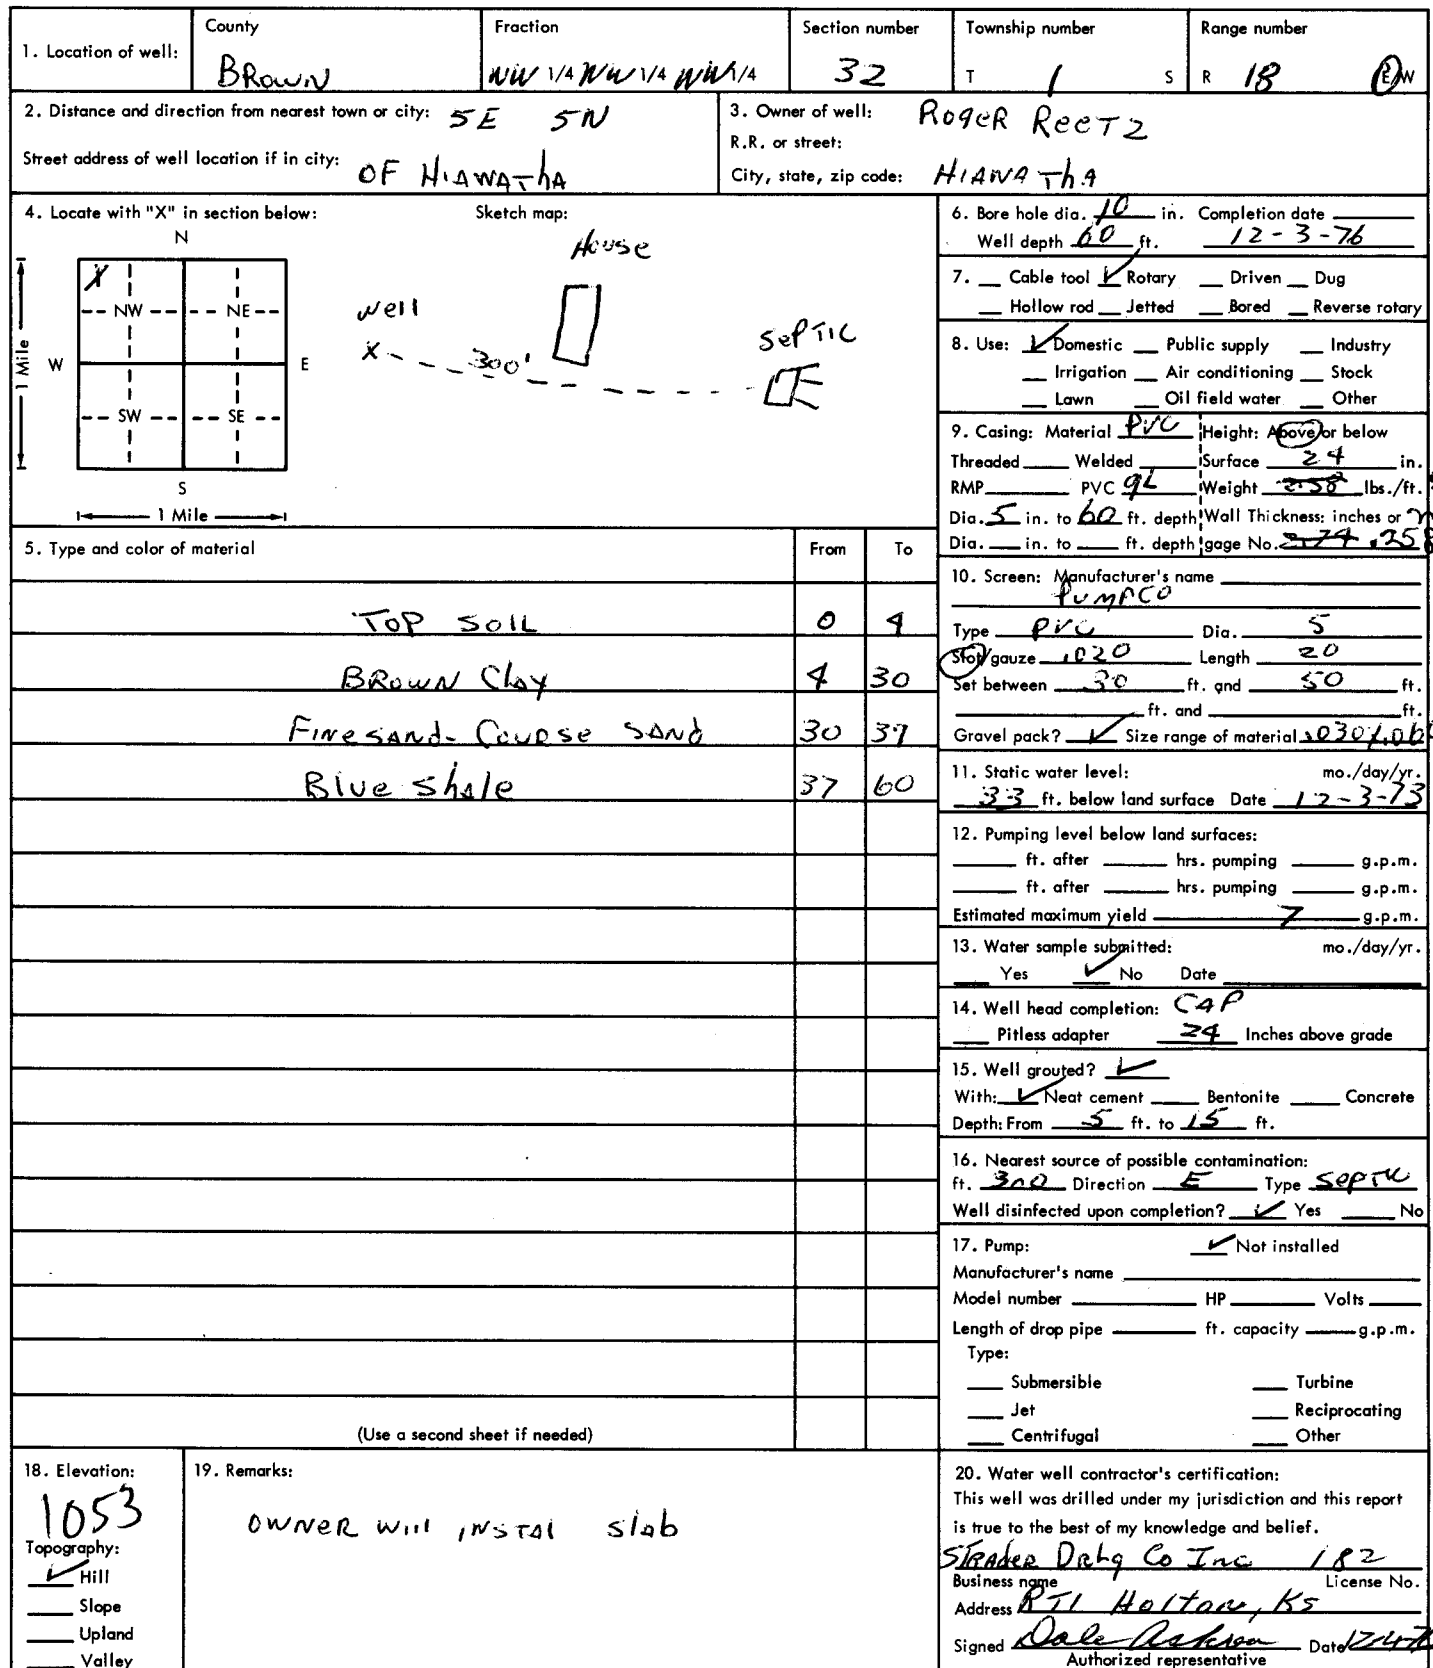 1. Location of well: County BRown Fraction NW 1/4 NW 1/4 NW 1/4 Section number 32 Township number T 1 S Range number R 18 E W
2. Distance and direction from nearest town or city: 5E 5N
Street address of well location if in city: OF HiAWAThA
3. Owner of well: RogeR ReeTz
R.R. or street:
City, state, zip code: HiAWAThA
4. Locate with "X" in section below: Sketch map:
N
X
NW NE
W E
SW SE
S
1 Mile
1 Mile
House
well
X 300'
SePTIC
5. Type and color of material From To
TOP SOIL 0 4
BROWN Clay 4 30
FINE SAND- COURSE SAND 30 37
Blue ShAle 37 60
(Use a second sheet if needed)
6. Bore hole dia. 10 in. Completion date
Well depth 60 ft. 12-3-76
7. Cable tool ✓ Rotary Driven Dug
Hollow rod Jetted Bored Reverse rotary
8. Use: ✓ Domestic Public supply Industry
Irrigation Air conditioning Stock
Lawn Oil field water Other
9. Casing: Material PVC Height: Above or below
Threaded Welded Surface 24 in.
RMP PVC gL Weight 2.58 lbs./ft.
Dia. 5 in. to 60 ft. depth Wall Thickness: inches or
Dia. in. to ft. depth gage No. .258
10. Screen: Manufacturer's name
PUMPCO
Type PVC Dia. 5
Slot/gauze .020 Length 20
Set between 30 ft. and 50 ft.
ft. and ft.
Gravel pack? ✓ Size range of material
11. Static water level: mo./day/yr.
33 ft. below land surface Date 12-3-73
12. Pumping level below land surfaces:
ft. after hrs. pumping g.p.m.
ft. after hrs. pumping g.p.m.
Estimated maximum yield 7 g.p.m.
13. Water sample submitted: mo./day/yr.
Yes ✓ No Date
14. Well head completion: CAP
Pitless adapter 24 Inches above grade
15. Well grouted? ✓
With: ✓ Neat cement Bentonite Concrete
Depth: From 5 ft. to 15 ft.
16. Nearest source of possible contamination:
ft. 300 Direction E Type SepTic
Well disinfected upon completion? ✓ Yes No
17. Pump: ✓ Not installed
Manufacturer's name
Model number HP Volts
Length of drop pipe ft. capacity g.p.m.
Type:
Submersible Turbine
Jet Reciprocating
Centrifugal Other
18. Elevation:
1053
Topography:
✓ Hill
Slope
Upland
Valley
19. Remarks:
OWNER Will INSTAl Slab
20. Water well contractor's certification:
This well was drilled under my jurisdiction and this report
is true to the best of my knowledge and belief.
STRADER Drlg Co Inc 182
Business name License No.
Address RT1 Holton, Ks
Signed Dale Date
Authorized representative